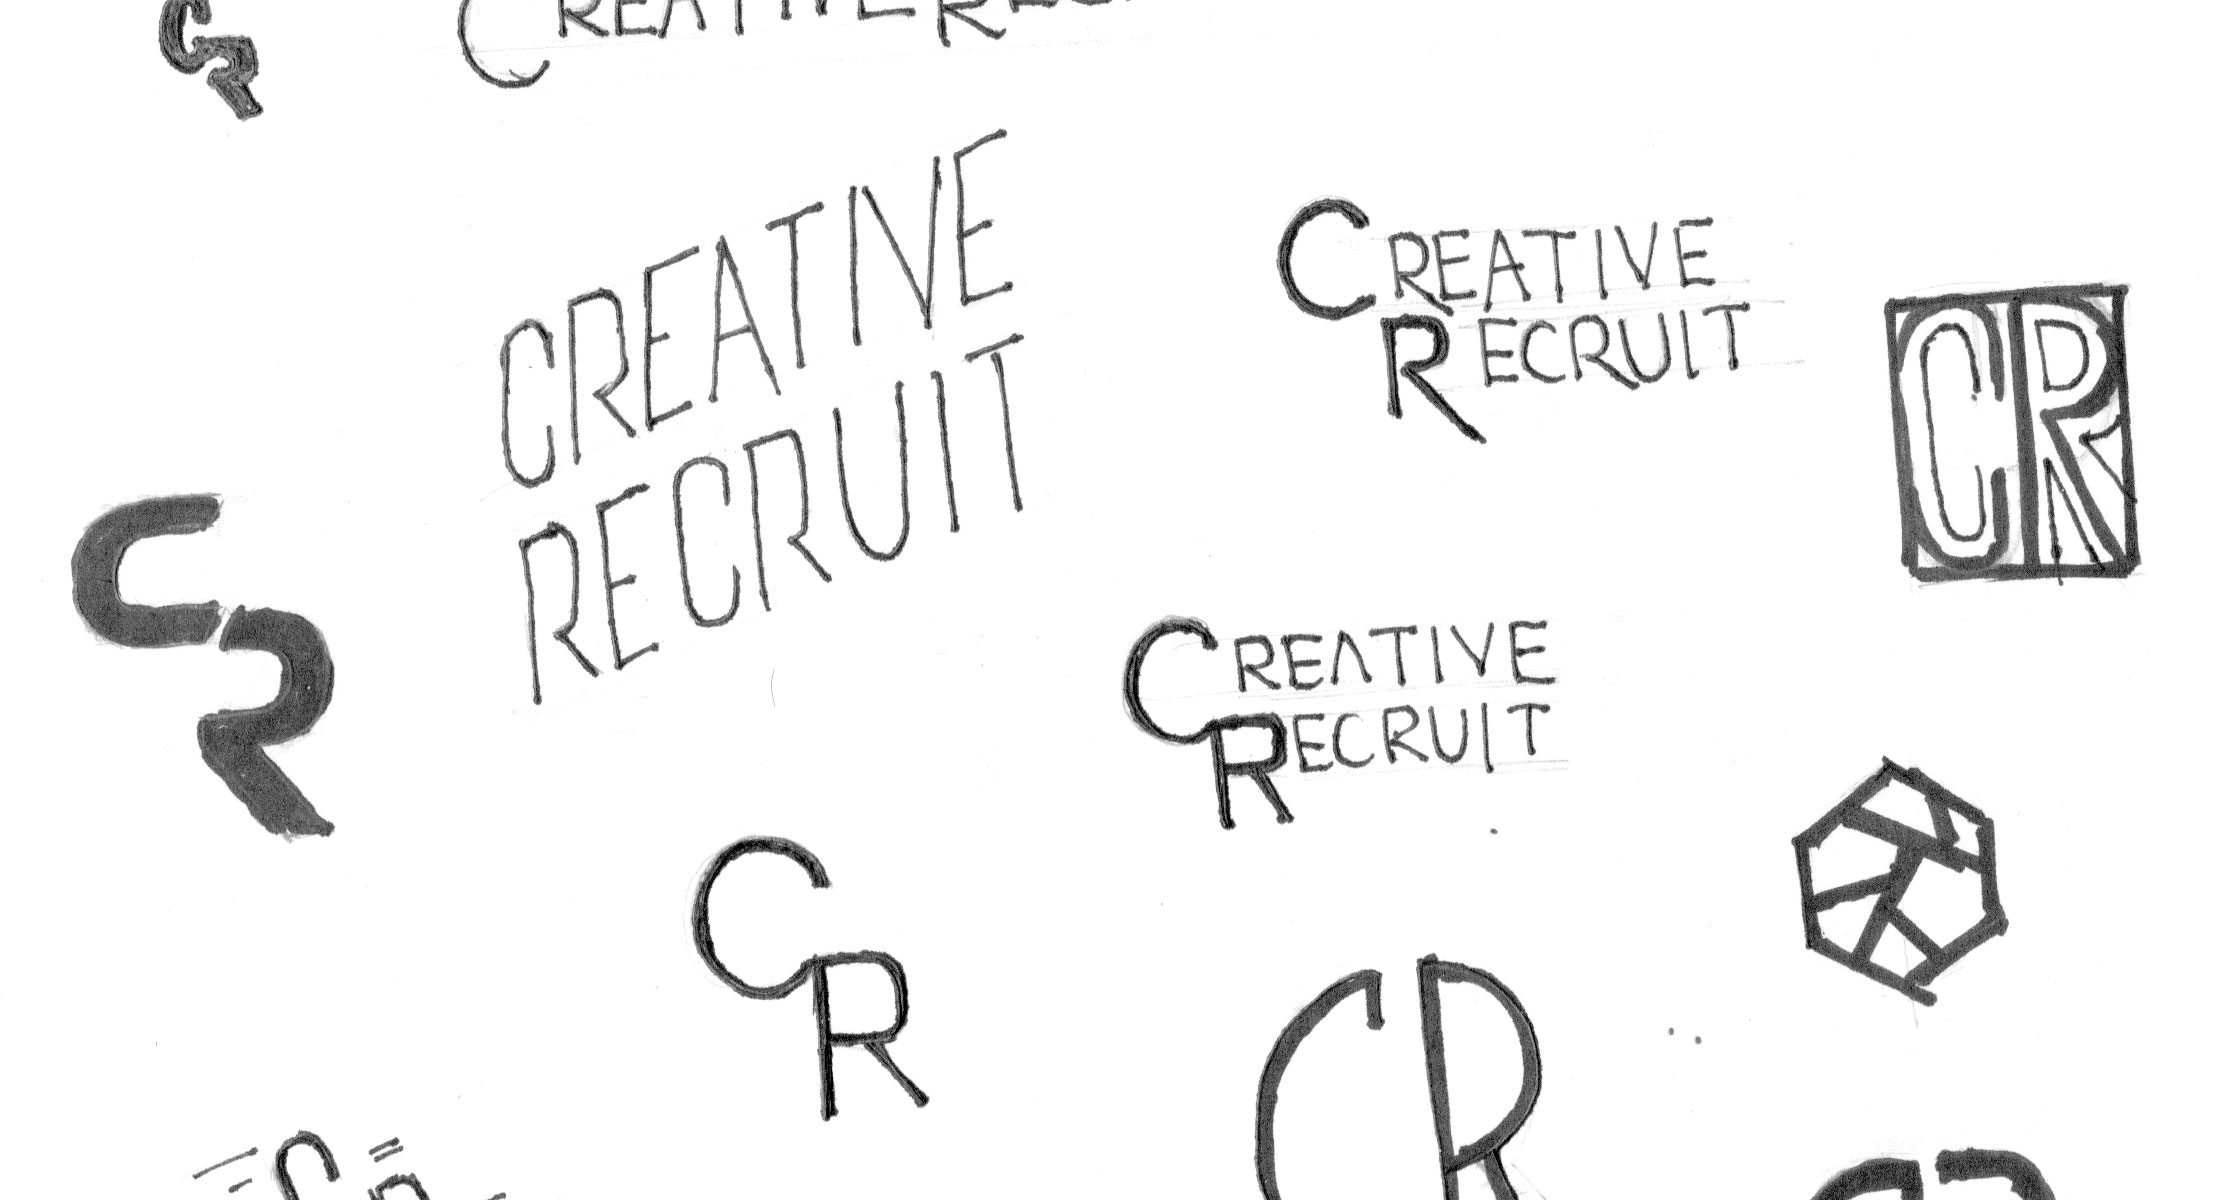 CR
CREATIVE
CREATIVE
RECRUIT
CREATIVE
RECRUIT
CR
CR
CREATIVE
RECRUIT
CR
CR